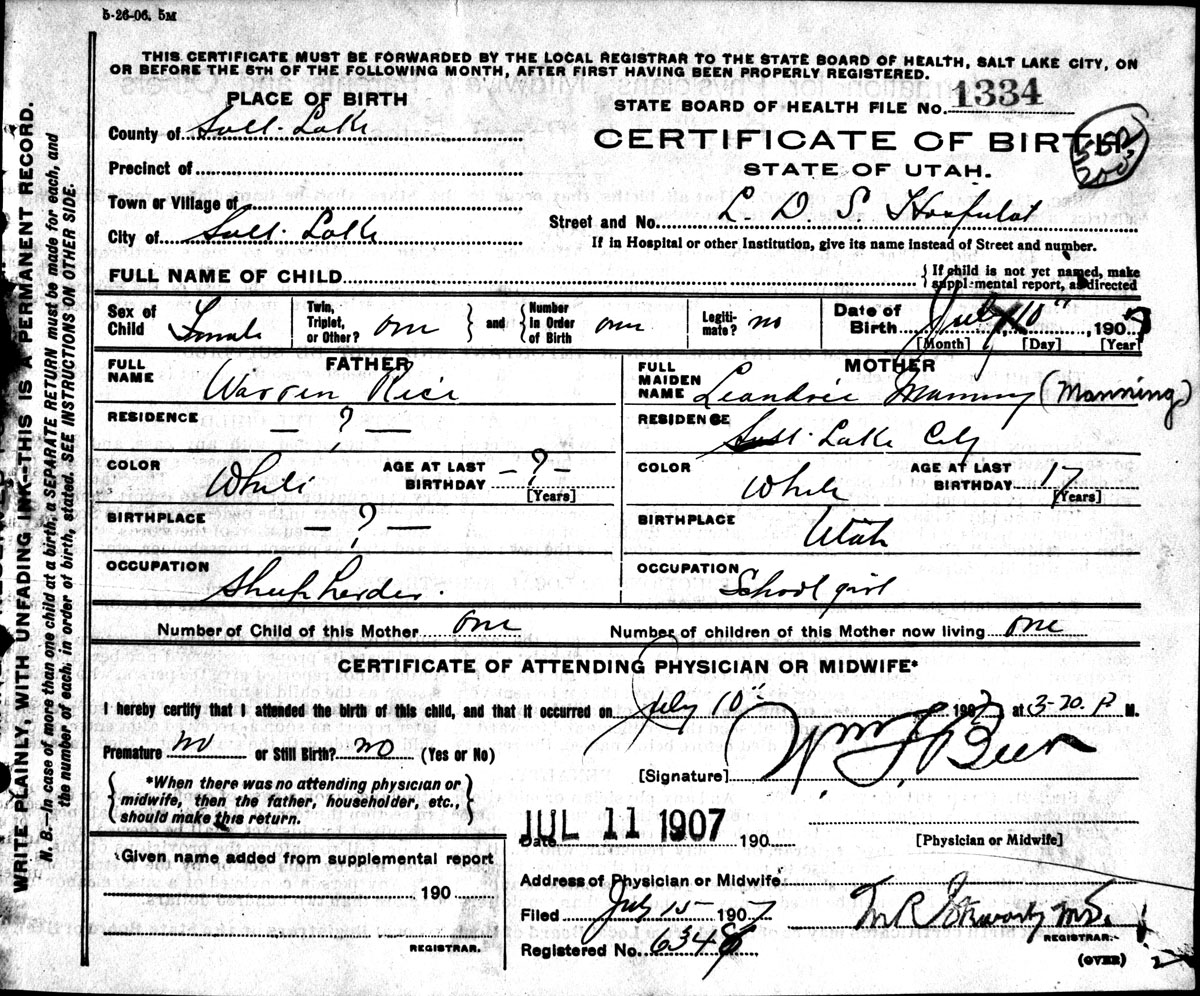 5-26-06. 5M
THIS CERTIFICATE MUST BE FORWARDED BY THE LOCAL REGISTRAR TO THE STATE BOARD OF HEALTH, SALT LAKE CITY, ON
OR BEFORE THE 5TH OF THE FOLLOWING MONTH, AFTER FIRST HAVING BEEN PROPERLY REGISTERED.
WRITE PLAINLY, WITH UNFADING INK—THIS IS A PERMANENT RECORD.
N. B.—In case of more than one child at a birth, a SEPARATE RETURN must be made for each, and
the number of each, in order of birth, stated. SEE INSTRUCTIONS ON OTHER SIDE.
PLACE OF BIRTH
STATE BOARD OF HEALTH FILE No. 1334
County of Salt Lake
CERTIFICATE OF BIRTH
Precinct of
STATE OF UTAH.
Town or Village of
Street and No. L D S Hospital
City of Salt Lake
If in Hospital or other Institution, give its name instead of Street and number.
FULL NAME OF CHILD
If child is not yet named, make
supplemental report, as directed
Sex of Child Female
Twin, Triplet, or Other? one
and Number in Order of Birth one
Legitimate? no
Date of Birth July 10", 1907
[Month] [Day] [Year]
FATHER
FULL NAME Warren Rice
RESIDENCE — ? —
COLOR White
AGE AT LAST BIRTHDAY — ? — [Years]
BIRTHPLACE — ? —
OCCUPATION Sheepherder.
MOTHER
FULL MAIDEN NAME Leandree Manning (Manning)
RESIDENCE Salt Lake City
COLOR White
AGE AT LAST BIRTHDAY 17 [Years]
BIRTHPLACE Utah
OCCUPATION School girl
Number of Child of this Mother one
Number of children of this Mother now living one
CERTIFICATE OF ATTENDING PHYSICIAN OR MIDWIFE*
I hereby certify that I attended the birth of this child, and that it occurred on July 10" 1907 at 3-20. P M.
Premature no or Still Birth? no (Yes or No)
[Signature] Wm F Beer
*When there was no attending physician or
midwife, then the father, householder, etc.,
should make this return.
JUL 11 1907
Date 190
[Physician or Midwife]
Given name added from supplemental report
190
REGISTRAR.
Address of Physician or Midwife
Filed July 15 - 1907
M.D.
REGISTRAR.
Registered No. 6348
(OVER)